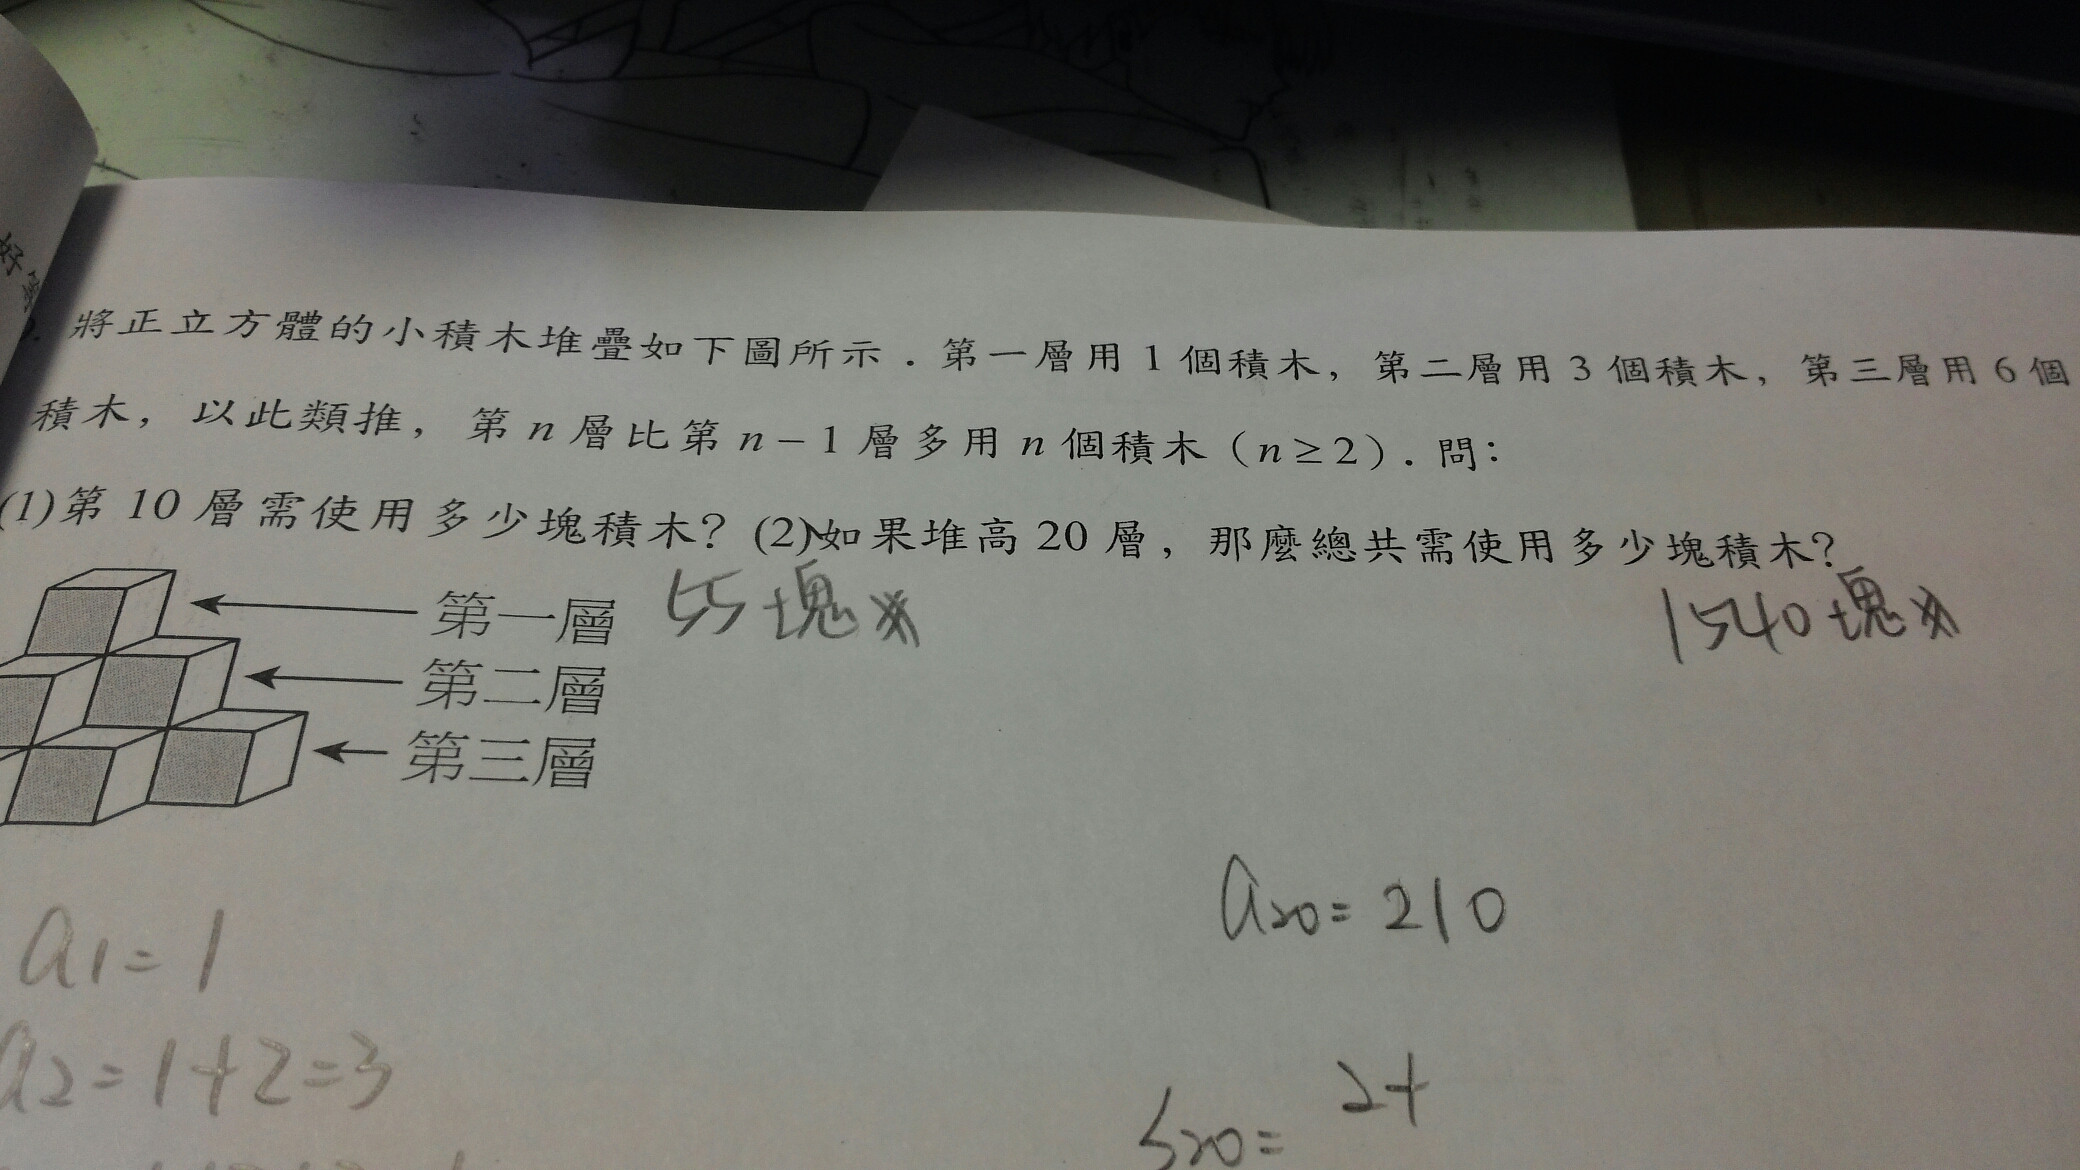 好
將正立方體的小積木堆疊如下圖所示．第一層用 1 個積木，第二層用 3 個積木，第三層用 6 個
積木，以此類推，第 n 層比第 n－1 層多用 n 個積木（n ≥ 2）．問：
(1)第 10 層需使用多少塊積木？(2)如果堆高 20 層，那麼總共需使用多少塊積木？
第一層 55 塊 1540 塊
第二層
第三層
a20 = 210
a1 = 1
a2 = 1+2=3
S20 = 2+